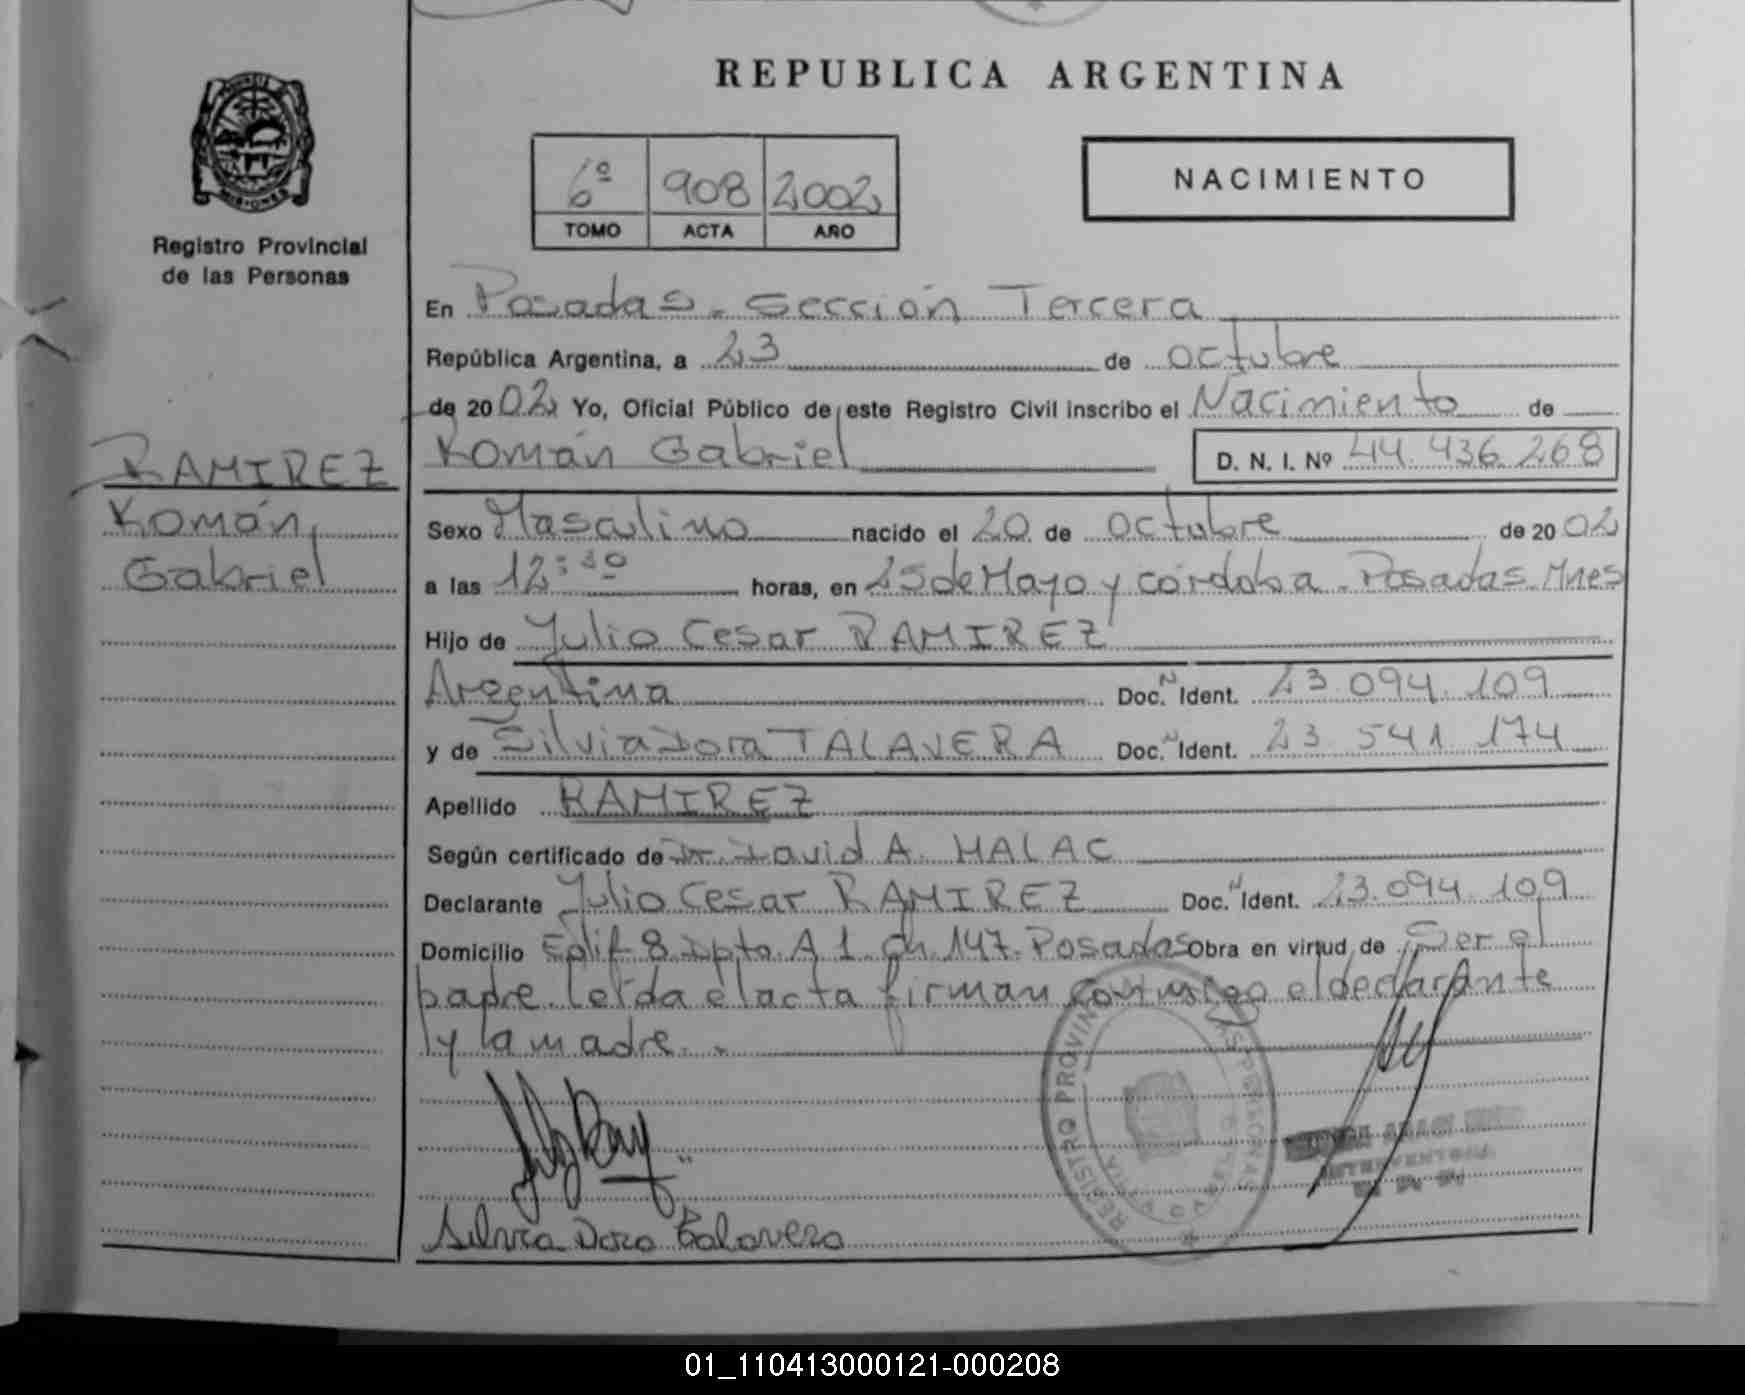 REPUBLICA ARGENTINA
6º 908 2002
TOMO ACTA AÑO
NACIMIENTO
MISIONES
Registro Provincial
de las Personas
RAMIREZ
Román
Gabriel
En Posadas. Sección Tercera
República Argentina, a 23 de octubre
de 2002 Yo, Oficial Público de este Registro Civil inscribo el Nacimiento de
Román Gabriel D. N. I. Nº 44.436.268
Sexo Masculino nacido el 20 de octubre de 2002
a las 12:30 horas, en 25 de Mayo y córdoba. Posadas. Mnes
Hijo de Julio Cesar RAMIREZ
Argentina Doc. N Ident. 23.094.109
y de Silvia Dora TALAVERA Doc. N Ident. 23.541.174
Apellido RAMIREZ
Según certificado de Dr. David A. MALAC
Declarante Julio Cesar RAMIREZ Doc. N Ident. 23.094.109
Domicilio Edif 8 Dpto. A 1. ch. 147. Posadas Obra en virtud de Ser el
padre. leída el acta firman conmigo el declarante
y la madre. .
REGISTRO PROVINCIAL DE LAS PERSONAS
Silvia Dora Talavera
01_110413000121-000208